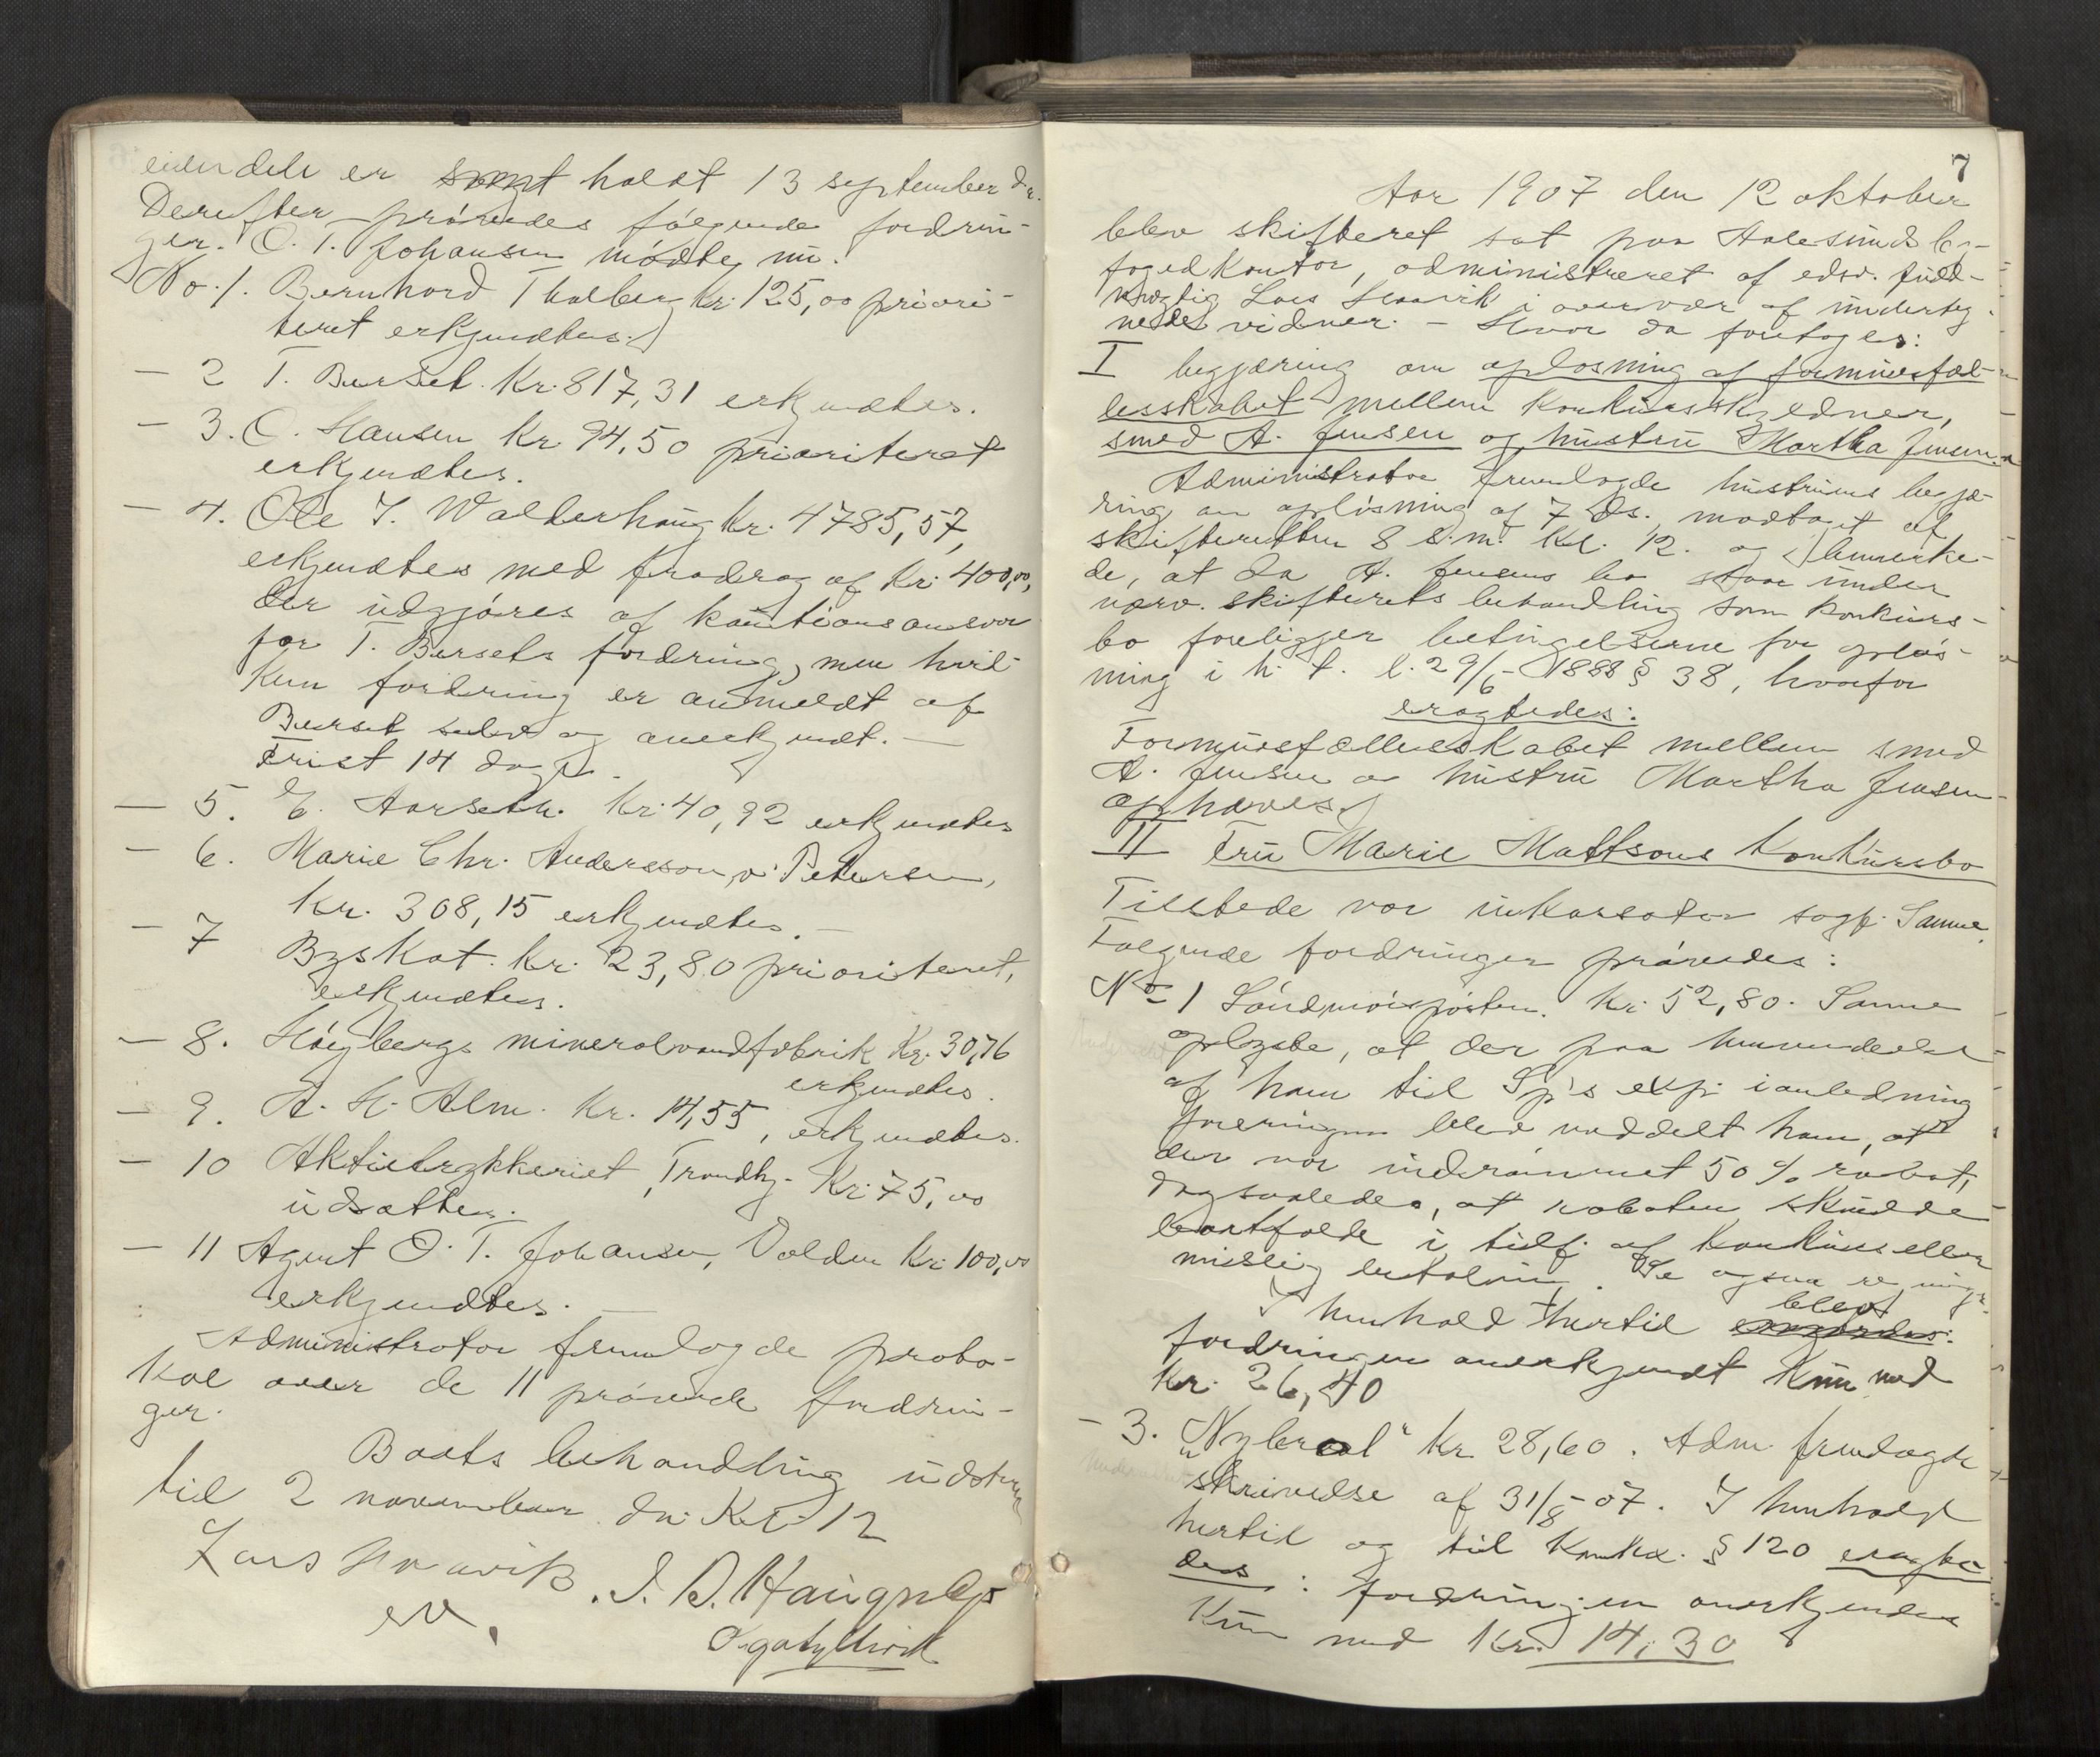 eiendele er holdt 13 september ds.
Derefter prövedes fölgende fordrin-
ger. O. T. Johansen mödte nu.
No. 1. Bernhard Thalberg Kr. 125,00 priori-
teret erkjendtes.
— 2 T. Berset. Kr. 817,31 erkjendtes.
— 3. C. Hansen Kr. 94,50 prioriteret
erkjendtes.
— 4. Ole J. Walderhaug Kr. 4785,57,
erkjendtes med fradrag af Kr. 400,00,
der udgjöres af kautionsansvar
for T. Bersets fordring, men hvil-
ken fordring er anmeldt af
Berset selv og anerkjendt. —
Frist 14 dage.
— 5. E. Aarseth. Kr. 40,92 erkjendtes
— 6. Marie Chr. Andersson, Petersen,
Kr. 308,15 erkjendtes. —
— 7 Byskat. Kr. 23,80 prioriteret,
erkjendtes.
— 8. Höybergs mineralvandfabrik Kr. 30,76
erkjendtes.
— 9. A. H. Alm. Kr. 14,55, erkjendtes.
— 10 Aktietrykkeriet, Trondhj. Kr. 75,00
udsattes.
— 11 Agent O. T. Johansen, Volden Kr. 100,00
erkjendtes. —
Administrator fremlagde proto-
kol over de 11 prövede fordrin-
ger.
Boets behandling udstaar
til 2 november ds. Kl. 12
Lars
7
Aar 1907 den 12 oktober
blev skifteret sat paa Aalesunds by-
fogedkontor, administreret af edsv. fuld-
mægtig Lars i overvær af underteg-
nede vidner. — Hvor da foretoges:
I begjæring om oplösning af formuesfæl-
lesskabet mellem konkursskyldner,
smed A. Jensen og hustru Martha Jensen.
Administrator fremlagde hustruens begjæ-
ring om oplösning af 7 ds., modtaget af
skifteretten 8 s.m. Kl. 12. og bemærke-
de, at da A. Jensens bo staar under
nærv. skifterets behandling som konkurs-
bo foreligger betingelserne for oplös-
ning i h. t. l. 29/6 - 1888 § 38, hvorfor
eragtedes:
Formuesfællesskabet mellem smed
A. Jensen og hustru Martha Jensen
ophæves.
II Fru Marie Mattsons Konkursbo
Tilstede var inkassator sagf. Sanne.
Følgende fordringer prövedes:
No 1 Söndmörsposten. Kr. 52,80. Sanne
oplyste, at der paa henvendelse
af ham til Sp's exp. i anledning
blev meddelt ham, at
der var indrömmet 50 % rabat,
dog saaledes, at rabaten skulde
bortfalde i tilf. af konkurs eller
mislig betaling. Se ogsaa
I henhold hertil blev
fordringen anerkjendt kun med
Kr. 26,40
— 3. "Nybrot" Kr. 28,60. Adm. fremlagde
skrivelse af 31/8 - 07. I henhold
hertil og til Konkl. § 120 eragte-
des: fordringen anerkjendes
kun med Kr. 14,30